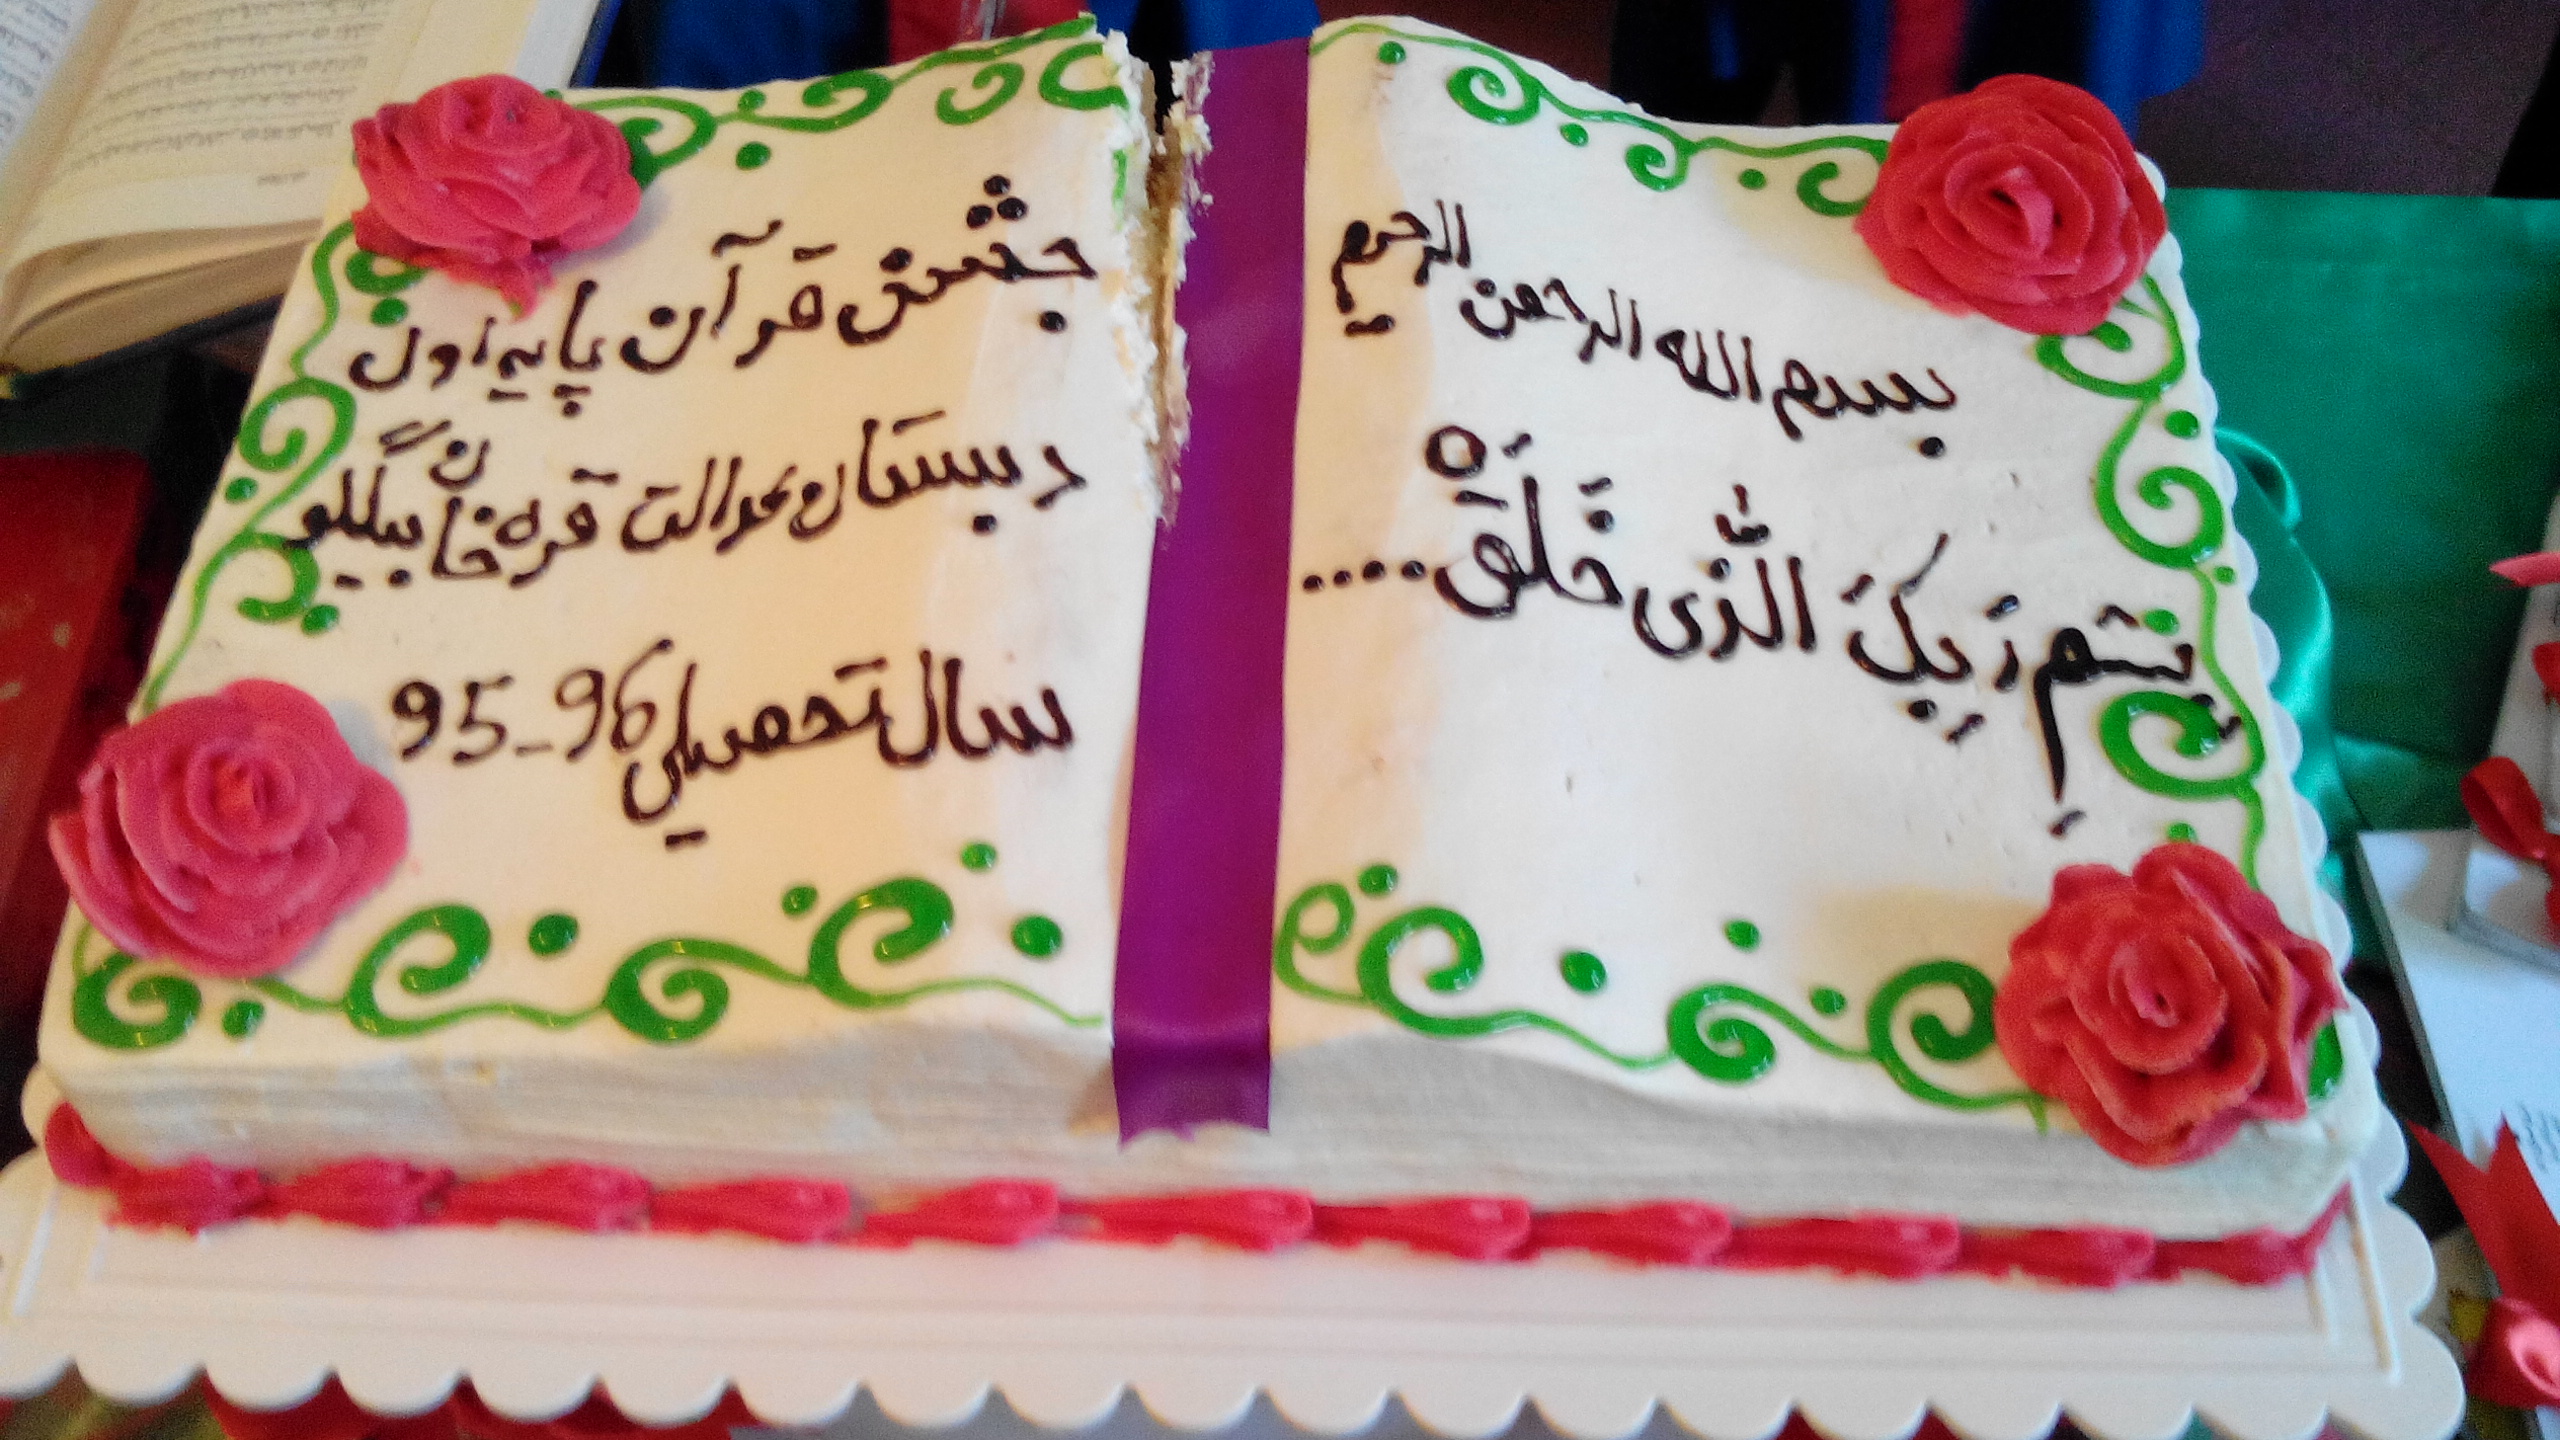 بسم الله الرحمن الرحیم
بِسْمِ رَبِکَ الَّذی خَلَقَ ه ....
جشن قرآن پایه اول
دبستان عدالت قره خان بیگلو
سال تحصیلی 96-95